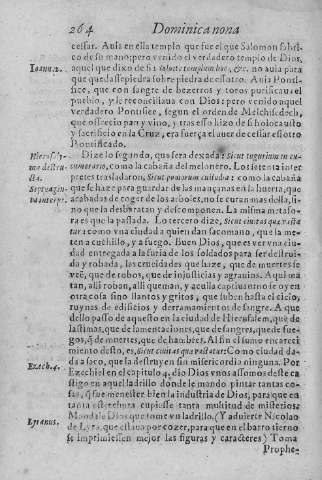 264 Dominica nona
cessar. Auia en ella templo que fue el que Salomon fabri-
co de su mano; pero venido el verdadero templo de Dios,
Ioann.2. aquel que dixo de si: soluite templum hoc, &c. no auia para
que quedasse piedra sobre piedra de essotro. Auia Ponti-
fice, que con sangre de bezerros y toros purificaua el
pueblo, y le reconciliaua con Dios: pero venido aquel
verdadero Pontifice, segun el orden de Melchisedech,
que ofrecio pan y vino, y tras esso hizo de si holocausto
y sacrificio en la Cruz, era fuerça el auer de cessar essotro
Pontificado.
Dize lo segundo, que sera dexada: Sicut tugurium in cu-
cumerario, como la cabaña del melonero. Los setenta inter-
pretes trasladaron, Sicut pomorum custodia: como la cabaña
que se haze para guardar de las mançanas en la huerta, que
acabadas de coger de los arboles, no se curan mas della, si-
no que la desbaratan y descomponen. La misma metafo-
ra es que la passada. Lo tercero dize, Sicut ciuitas quæ vasta-
tur: como vna ciudad a quien dan sacomano, que la me-
ten a cuchillo, y a fuego. Buen Dios, que es ver vna ciu-
dad entregada a la furia de los soldados para ser destrui-
da y robada, las crueldades que haze, que de muertes se
vee, que de robos, que de injusticias y agrauios. Aqui ma
tan, alli roban, alli queman, y aculla captiuan: no se oye en
otra cosa sino llantos y gritos, que suben hasta el cielo,
ruynas de edificios y derramamientos de sangre. A que
dello passo de aquesto en la ciudad de Hierusalem, que de
lastimas, que de lamentaciones, que de sangres, que de fue-
gos, q̃ de muertes, que de hambres. Al fin el sumo encareci
miento desto, es, Sicut ciuitas quæ vastatur: Como ciudad da-
da a saco, que la destruyen sin misericordia ninguna. Por
Ezech.4. Ezechiel en el capitulo 4. dio Dios vnos assomos deste ca
stigo en aquel ladrillo donde le mando pintar tantas co-
sas, q̃ fue menester bien la industria de Dios, para que en
tanta estrechura cupiesse tanta multitud de misterios.
Mandale Dios que tome vn ladrillo. (Y aduierte Nicolao
Lyranus. de Lyra, que estaua por cozer, para que en el barro tierno
se imprimiessen mejor las figuras y caracteres) Toma
Prophe-